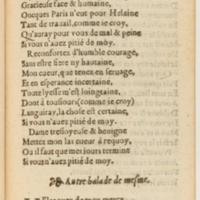 Gracieuse face & humaine,
Oncques Paris n'eut pour Helaine
Tant de trauail, comme ie croy,
Qu'auray pour vous de mal & peine
Si vous n'auez pitié de moy.
Reconfortez d'humble courage,
Sans estre fiere ny hautaine,
Mon cueur, que tenez en seruage,
Et en esperance incertaine,
Dont à tousiours (comme ie croy,
Languiray, la chose est certaine,
Si vous n'auez pitié de moy.
Dame tresioyeuse & benigne
Mettez mon las cueur à requoy,
Ou il faut que mes iours termine
Si vous n'auez pitié de moy.
Autre balade de mesme.